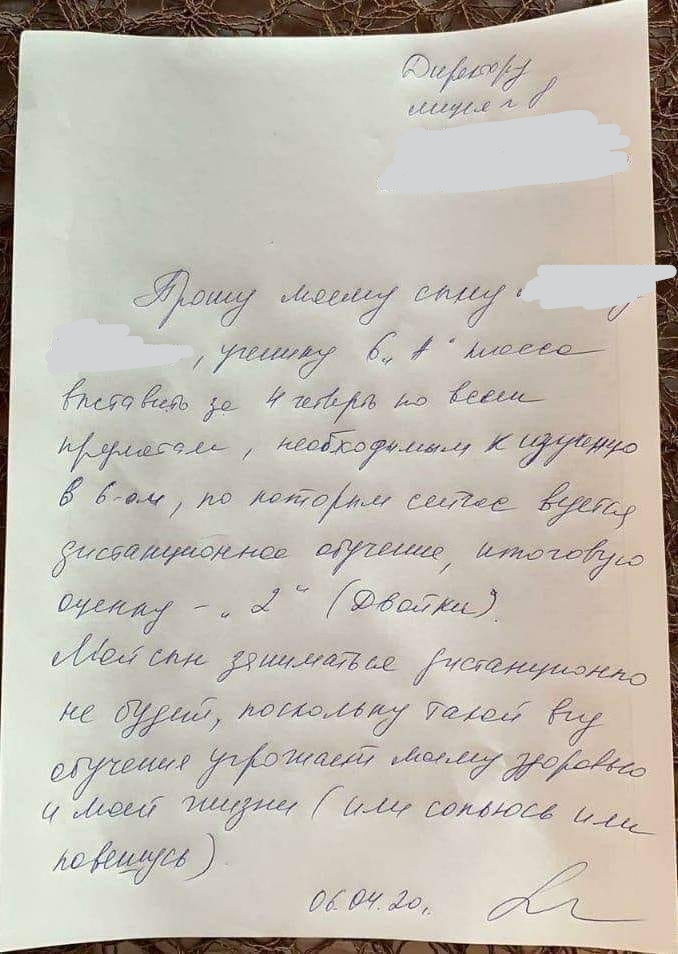 Директору
лицея г
Прошу моему сыну
, ученику 6 „А" класса
выставить за 4 четверть по всем
предметам, необходимым к изучению
в 6-ом, по которым сейчас ведётся
дистанционное обучение, итоговую
оценку - „2" (Двойки).
Мой сын заниматься дистанционно
не будет, поскольку такой вид
обучения угрожает моему здоровью
и моей жизни (или сопьюсь или
повешусь).
06.04.20г.